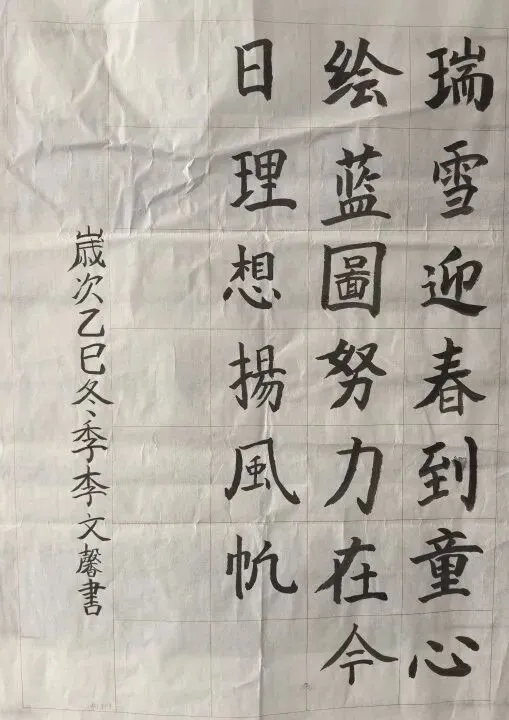 瑞雪迎春到童心
绘蓝圖努力在今
日理想揚風帆
歲次乙巳冬季李文馨書